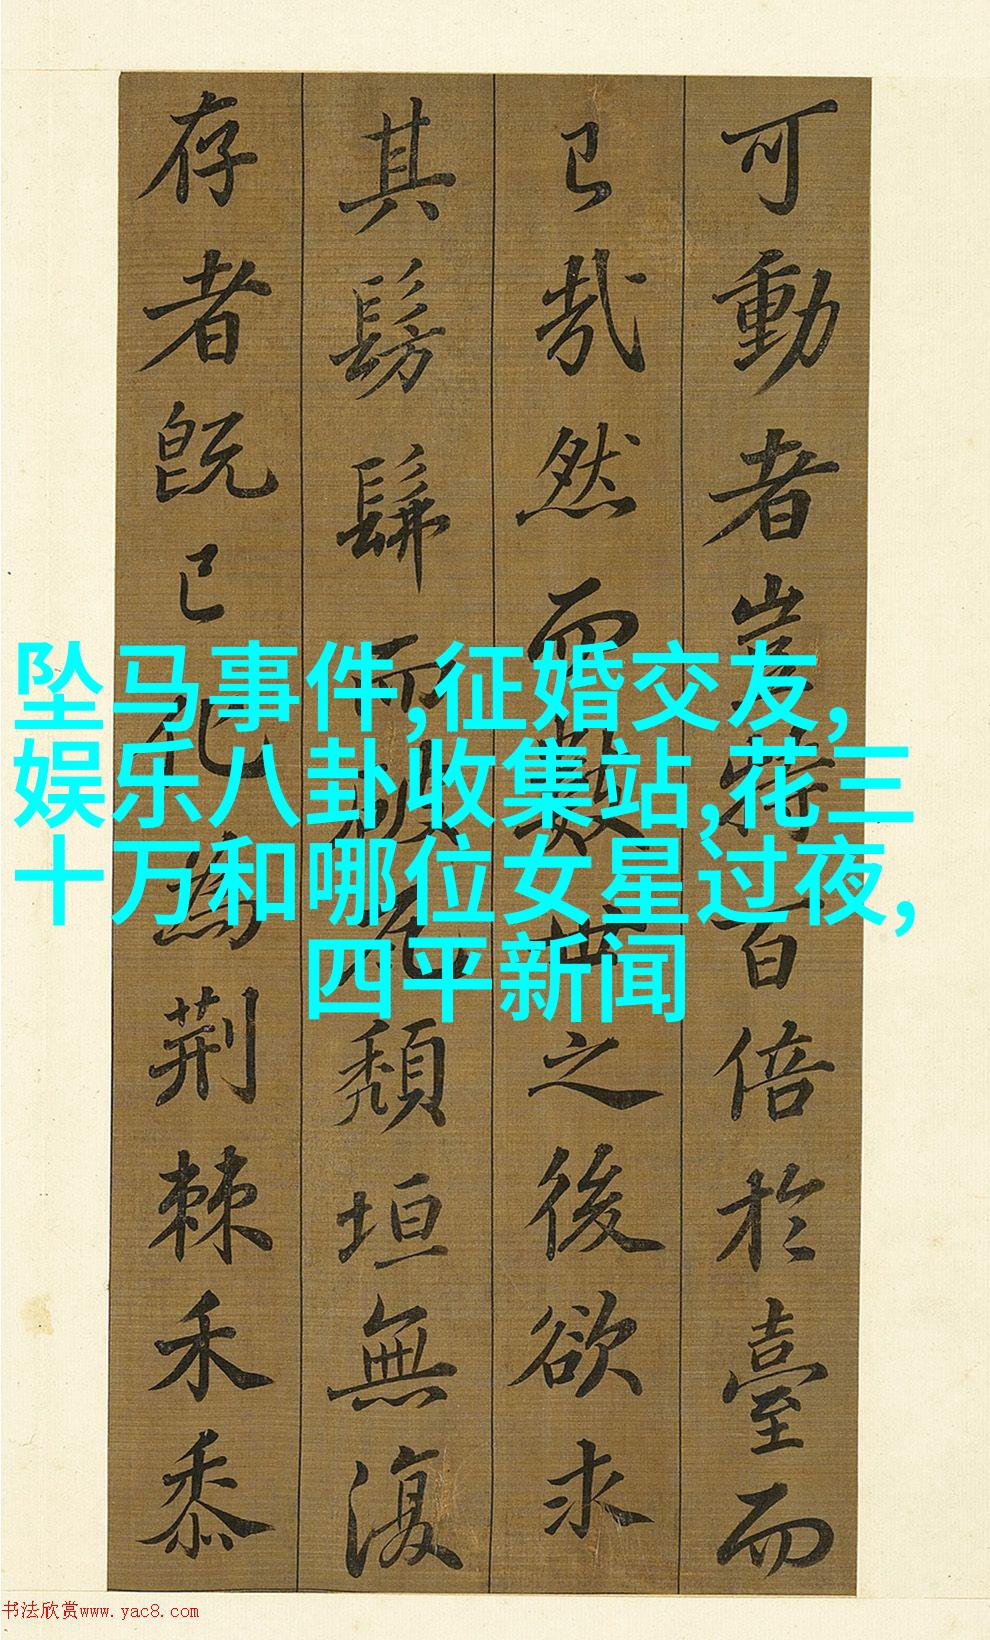 可動者豈特百倍於臺而
已哉然而數世之後欲求
其髣髴而破瓦頹垣無復
存者既已化為荊棘禾黍
坠马事件,征婚交友,
娱乐八卦收集站,花三
十万和哪位女星过夜,
四平新闻
书法欣赏www.yac8.com